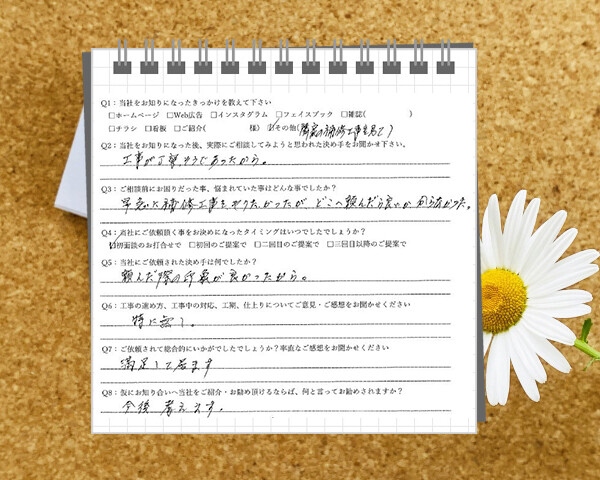 Q1：当社をお知りになったきっかけを教えて下さい
□ホームページ □Web広告 □インスタグラム □フェイスブック □雑誌( )
□チラシ □看板 □ご紹介( 様) ☑その他(隣家の補修工事を見て)
Q2：当社をお知りになった後、実際にご相談してみようと思われた決め手をお聞かせ下さい。
工事が丁寧そうであったから。
Q3：ご相談前にお困りだった事、悩まれていた事はどんな事でしたか？
早急に補修工事をやりたかったが どこへ頼んだら良いか 判らなかった。
Q4：当社にご依頼頂く事をお決めになったタイミングはいつでしたでしょうか？
☑初面談のお打合せで □初回のご提案で □二回目のご提案で □三回目以降のご提案で
Q5：当社にご依頼された決め手は何でしたか？
頼んだ際の印象が良かったから。
Q6：工事の進め方、工事中の対応、工期、仕上りについてご意見・ご感想をお聞かせください
特に無し。
Q7：ご依頼されて総合的にいかがでしたでしょうか？率直なご感想をお聞かせください
満足して居ます
Q8：仮にお知り合いへ当社をご紹介・お勧め頂けるならば、何と言ってお勧めされますか？
今後 考えます。